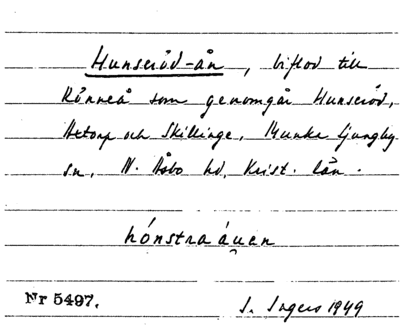 Hunseröd-ån, biflod till
Rönneå som genomgår Hunseröd,
Axtorp och Skillinge, Munka Ljungby
sn, N. Åsbo hd, Krist. län.
hónstraáu̯en
Nr 5497.
I. Ingers 1949